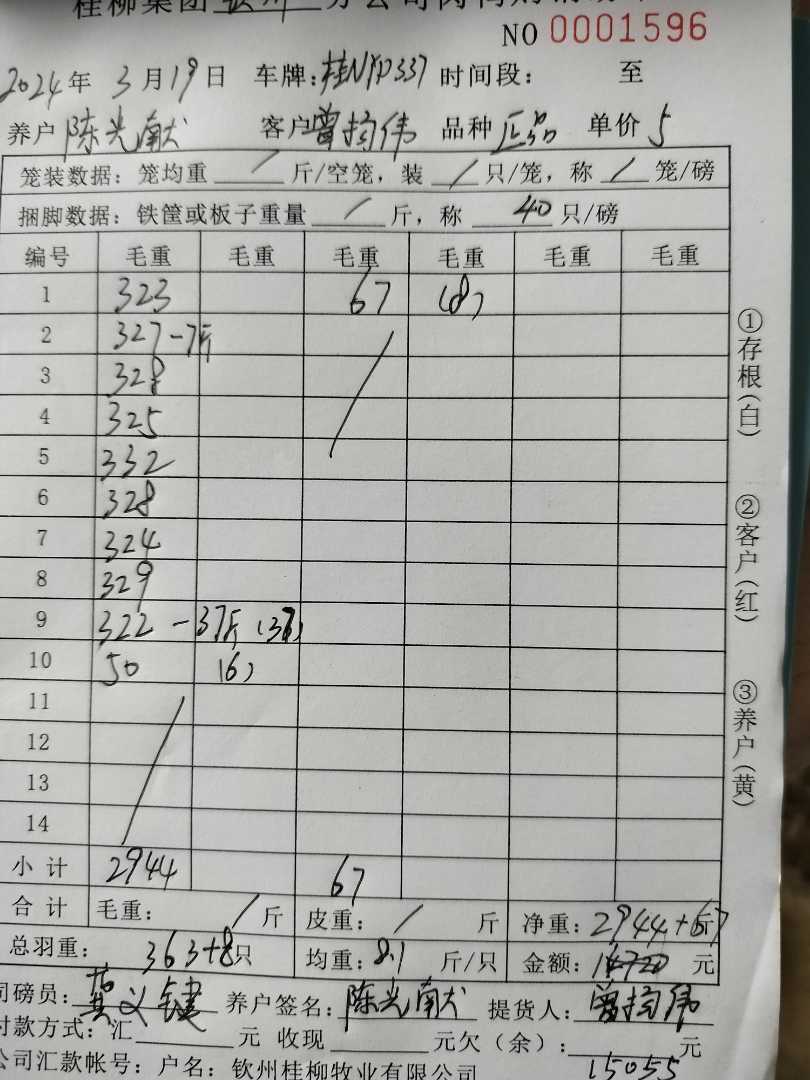 桂柳集团 钦州 分公司
NO 0001596
2024年 3月19日 车牌:桂NYP337 时间段: 至
养户 陈光献 客户 曾绚伟 品种 正品 单价 5
笼装数据: 笼均重 / 斤/空笼, 装 / 只/笼, 称 / 笼/磅
捆脚数据: 铁筐或板子重量 / 斤, 称 40 只/磅
编号 毛重 毛重 毛重 毛重 毛重 毛重
1 323 67 (8)
2 327 -7斤
3 328
4 325
5 332
6 328
7 324
8 329
9 322 -37斤 (37)
10 50 (6)
11
12
13
14
小计 2944 67
合计 毛重: / 斤 皮重: / 斤 净重: 2944+67 斤
总羽重: 363+8只 均重: 8.1 斤/只 金额: 14720 元
司磅员: 龚义键 养户签名: 陈光献 提货人: 曾绚伟
付款方式: 汇 元 收现 元欠(余): 元
15055
公司汇款帐号: 户名: 钦州桂柳牧业有限公司
①存根(白)
②客户(红)
③养户(黄)